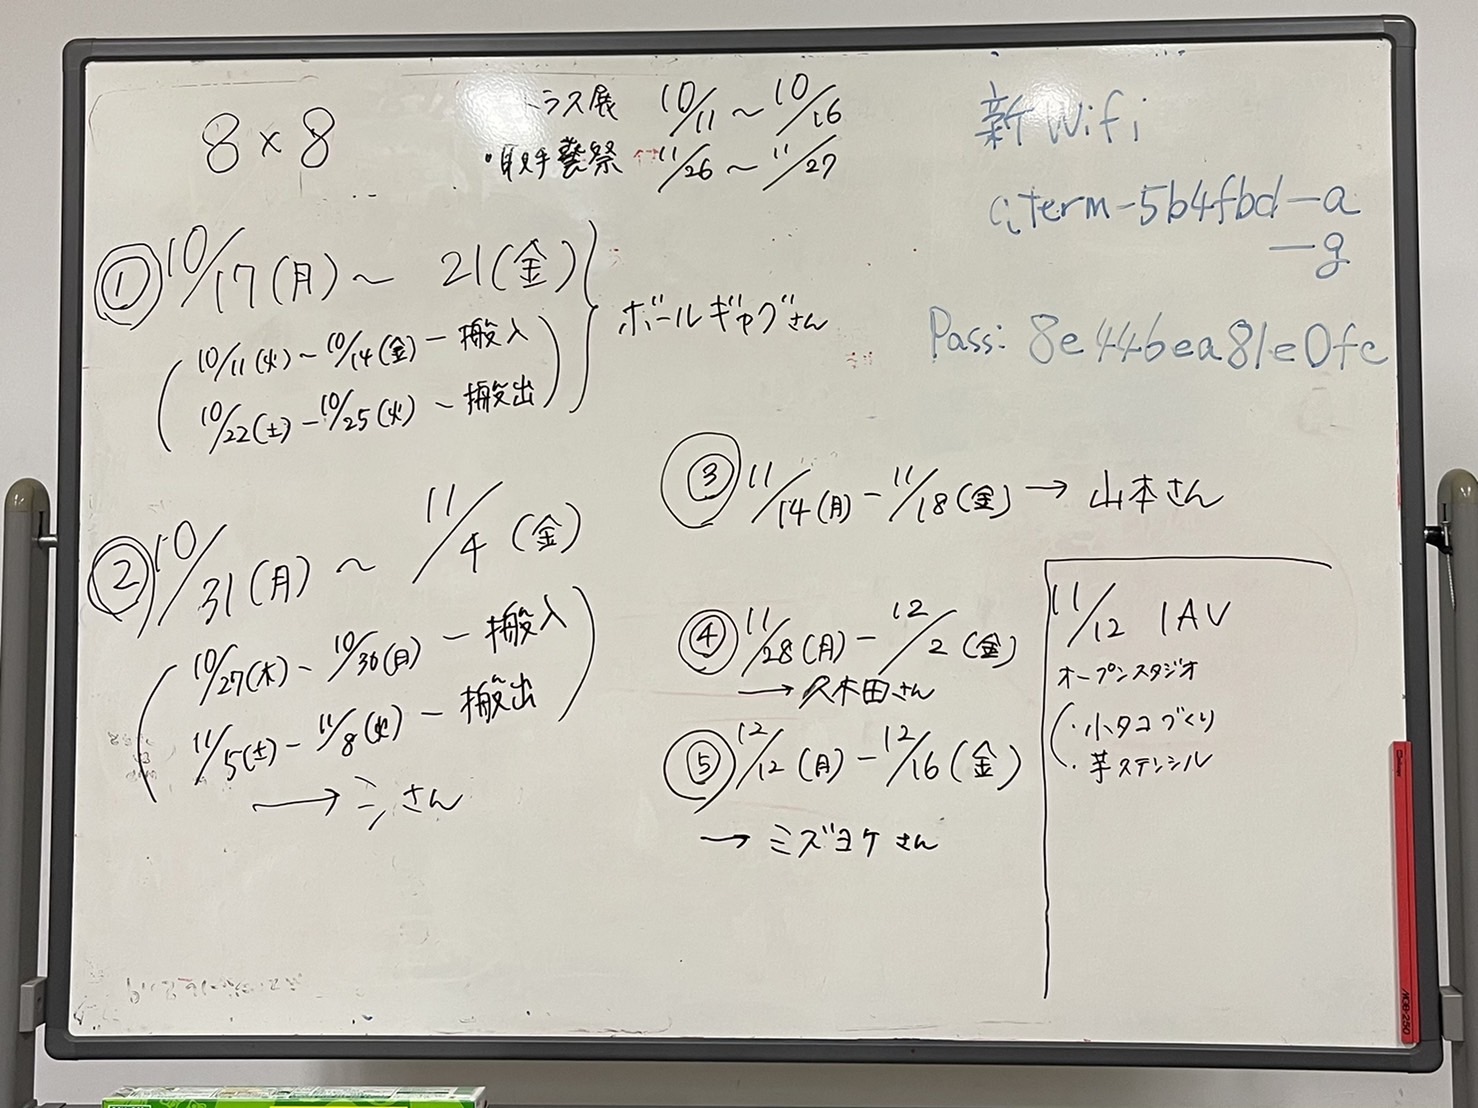 8×8
トラス展 10/11〜10/16
・取手藝祭 11/26〜11/27
① 10/17(月)〜 21(金)
(10/11(火)〜10/14(金)ー搬入
10/22(土)ー10/25(火)〜搬出)
ボールギャグさん
② 10/31(月)〜 11/4(金)
(10/27(木)ー10/30(月)ー搬入
11/5(土)ー11/8(火)ー搬出)
→ さん
新Wifi
term-5b4fbd-a
-g
Pass: 8e446ea81e0fc
③ 11/14(月)ー11/18(金)→ 山本さん
④ 11/28(月)ー12/2(金)
→ 久木田さん
⑤ 12/12(月)ー12/16(金)
→ ミズヨケさん
11/12 IAV
オープンスタジオ
(・小タコづくり
・芋ステンシル